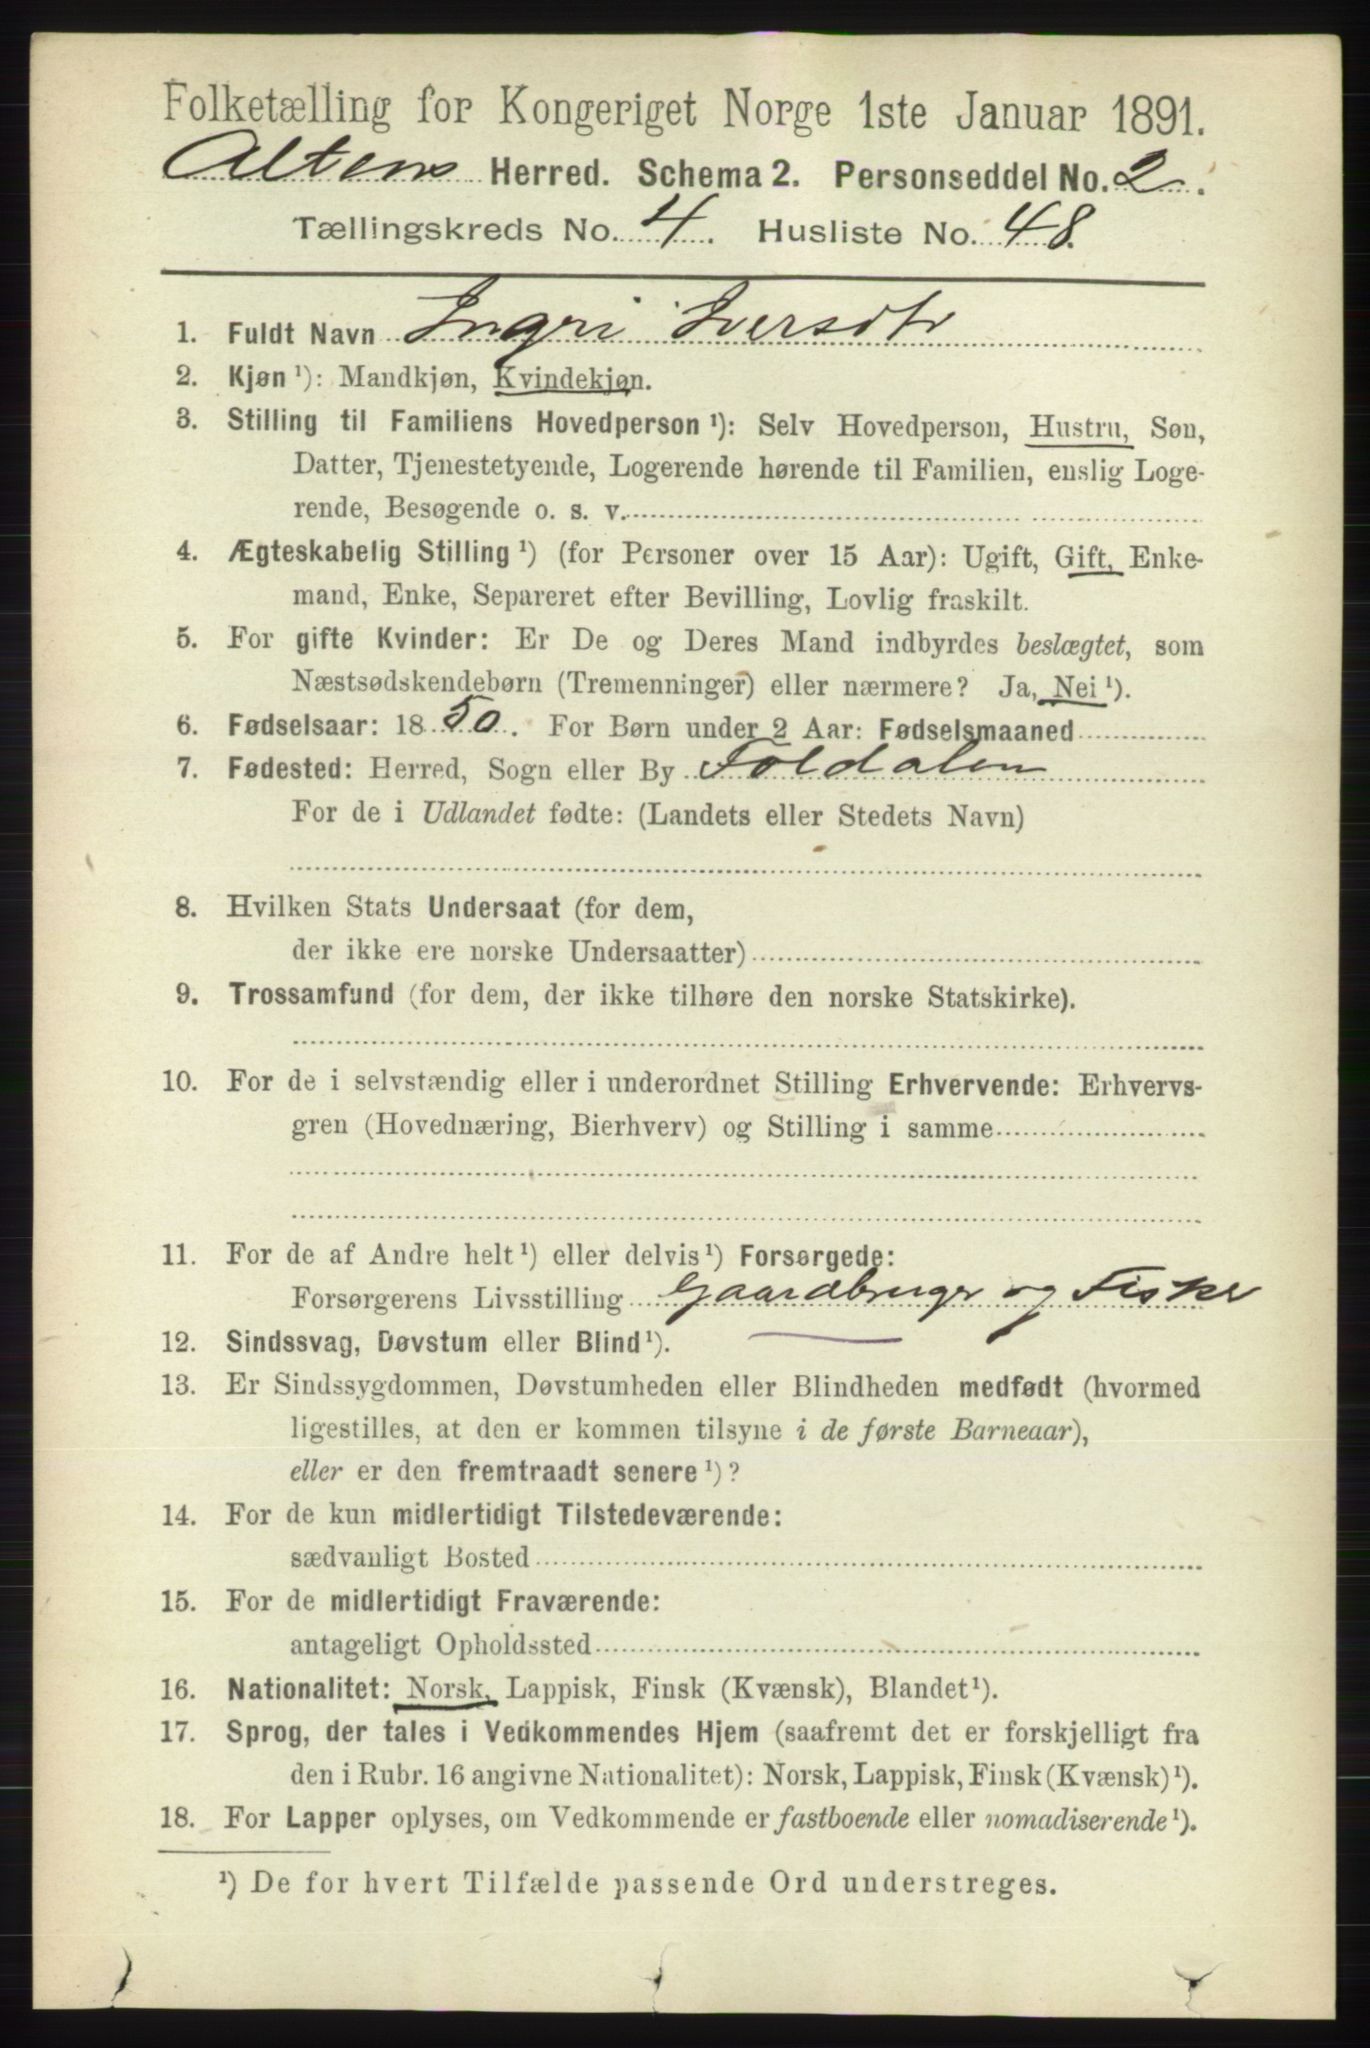 Folketælling for Kongeriget Norge 1ste Januar 1891.
Altens Herred. Schema 2. Personseddel No. 2.
Tællingskreds No. 4. Husliste No. 48.
1. Fuldt Navn Ingri Iversdtr
2. Kjøn ¹): Mandkjøn, Kvindekjøn.
3. Stilling til Familiens Hovedperson ¹): Selv Hovedperson, Hustru, Søn,
Datter, Tjenestetyende, Logerende hørende til Familien, enslig Loge-
rende, Besøgende o. s. v.
4. Ægteskabelig Stilling ¹) (for Personer over 15 Aar): Ugift, Gift, Enke-
mand, Enke, Separeret efter Bevilling, Lovlig fraskilt.
5. For gifte Kvinder: Er De og Deres Mand indbyrdes beslægtet, som
Næstsødskendebørn (Tremenninger) eller nærmere? Ja, Nei ¹).
6. Fødselsaar: 1850. For Børn under 2 Aar: Fødselsmaaned
7. Fødested: Herred, Sogn eller By Foldalen
For de i Udlandet fødte: (Landets eller Stedets Navn)
8. Hvilken Stats Undersaat (for dem,
der ikke ere norske Undersaatter)
9. Trossamfund (for dem, der ikke tilhøre den norske Statskirke).
10. For de i selvstændig eller i underordnet Stilling Erhvervende: Erhvervs-
gren (Hovednæring, Bierhverv) og Stilling i samme
11. For de af Andre helt ¹) eller delvis ¹) Forsørgede:
Forsørgerens Livsstilling Gaardbruger og Fisker
12. Sindssvag, Døvstum eller Blind ¹).
13. Er Sindssygdommen, Døvstumheden eller Blindheden medfødt (hvormed
ligestilles, at den er kommen tilsyne i de første Barneaar),
eller er den fremtraadt senere ¹)?
14. For de kun midlertidigt Tilstedeværende:
sædvanligt Bosted
15. For de midlertidigt Fraværende:
antageligt Opholdssted
16. Nationalitet: Norsk, Lappisk, Finsk (Kvænsk), Blandet ¹).
17. Sprog, der tales i Vedkommendes Hjem (saafremt det er forskjelligt fra
den i Rubr. 16 angivne Nationalitet): Norsk, Lappisk, Finsk (Kvænsk) ¹).
18. For Lapper oplyses, om Vedkommende er fastboende eller nomadiserende ¹).
¹) De for hvert Tilfælde passende Ord understreges.